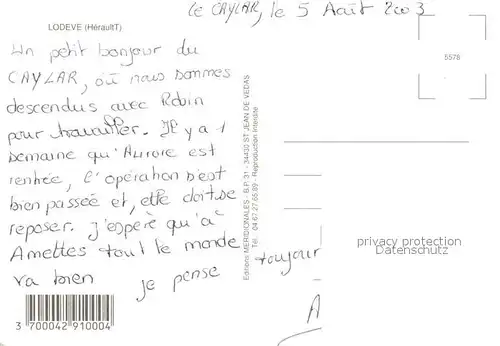 Le CAYLAR, le 5 Août 2003
LODEVE (HéraulT)
5578
Un petit bonjour du
CAYLAR, où nous sommes
descendus avec Robin
pour travailler. Il y a 1
semaine qu'Aurore est
rentrée, l'opération s'est
bien passée et, elle doit se
reposer. J'espère qu'à
Amettes tout le monde
va bien je pense
toujour
A
Editions MERIDIONALES - B.P. 31 - 34430 ST JEAN DE VEDAS
Tél. 04 67 27 65 89 - Reproduction Interdite
privacy protection
Datenschutz
3 700042 910004